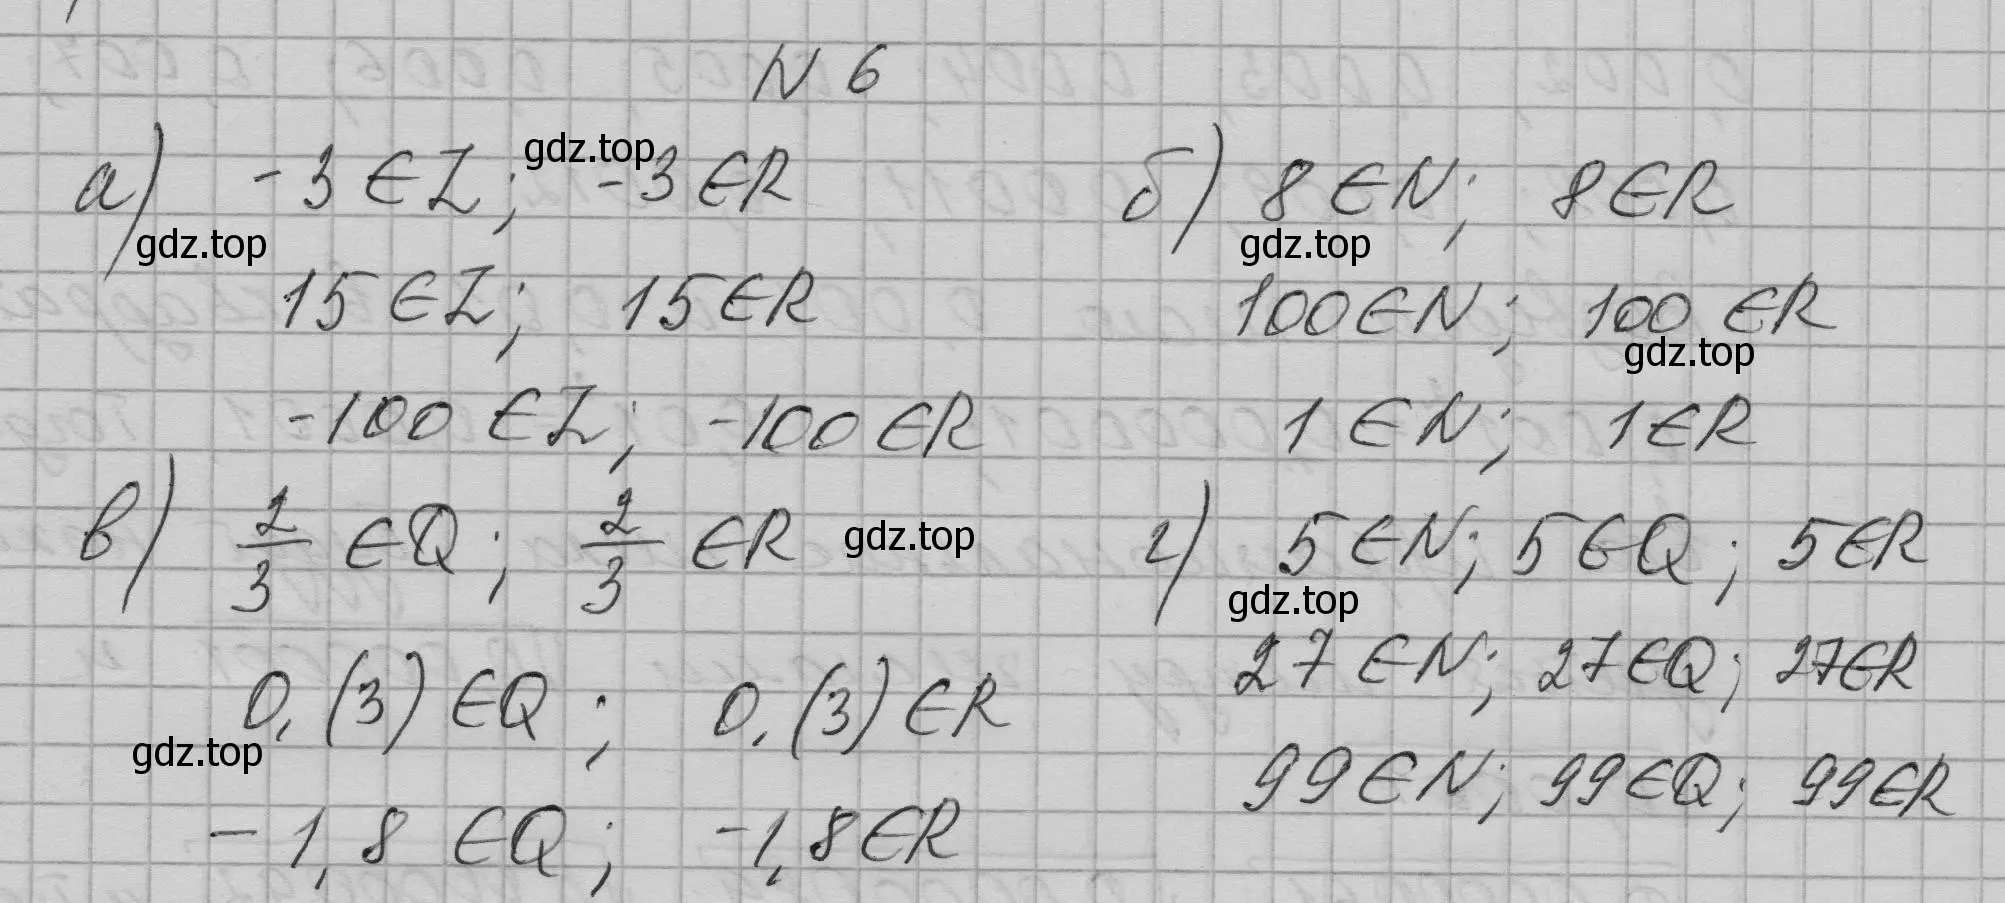 N 6
а) -3 ∈ Z; -3 ∈ R
gdz.top
15 ∈ Z; 15 ∈ R
-100 ∈ Z; -100 ∈ R
б) 8 ∈ N; 8 ∈ R
100 ∈ N; 100 ∈ R
1 ∈ N; 1 ∈ R
в) 2/3 ∈ Q; 2/3 ∈ R
0,(3) ∈ Q; 0,(3) ∈ R
-1,8 ∈ Q; -1,8 ∈ R
г) 5 ∈ N; 5 ∈ Q; 5 ∈ R
27 ∈ N; 27 ∈ Q; 27 ∈ R
99 ∈ N; 99 ∈ Q; 99 ∈ R
gdz.top
gdz.top
gdz.top
gdz.top
gdz.top
gdz.top